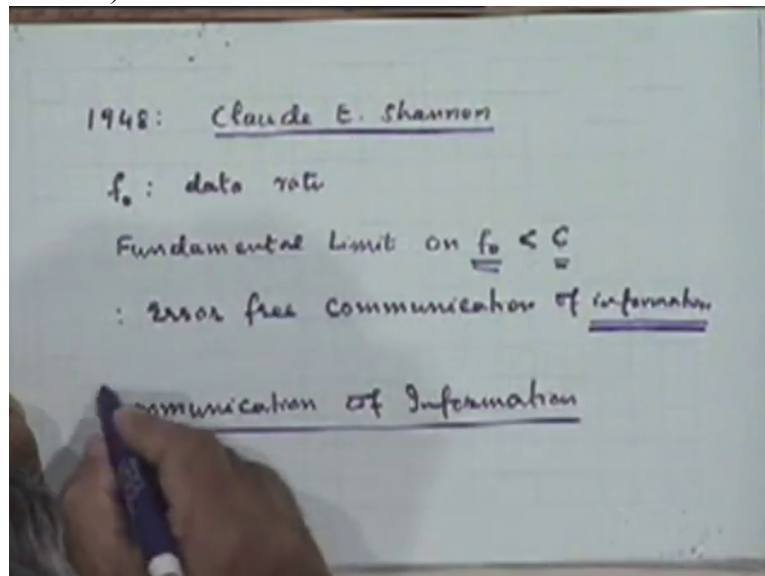 1948: Claude E. Shannon
f₀: data rate
Fundamental Limit on f₀ < C
: Error free communication of information
Communication of Information